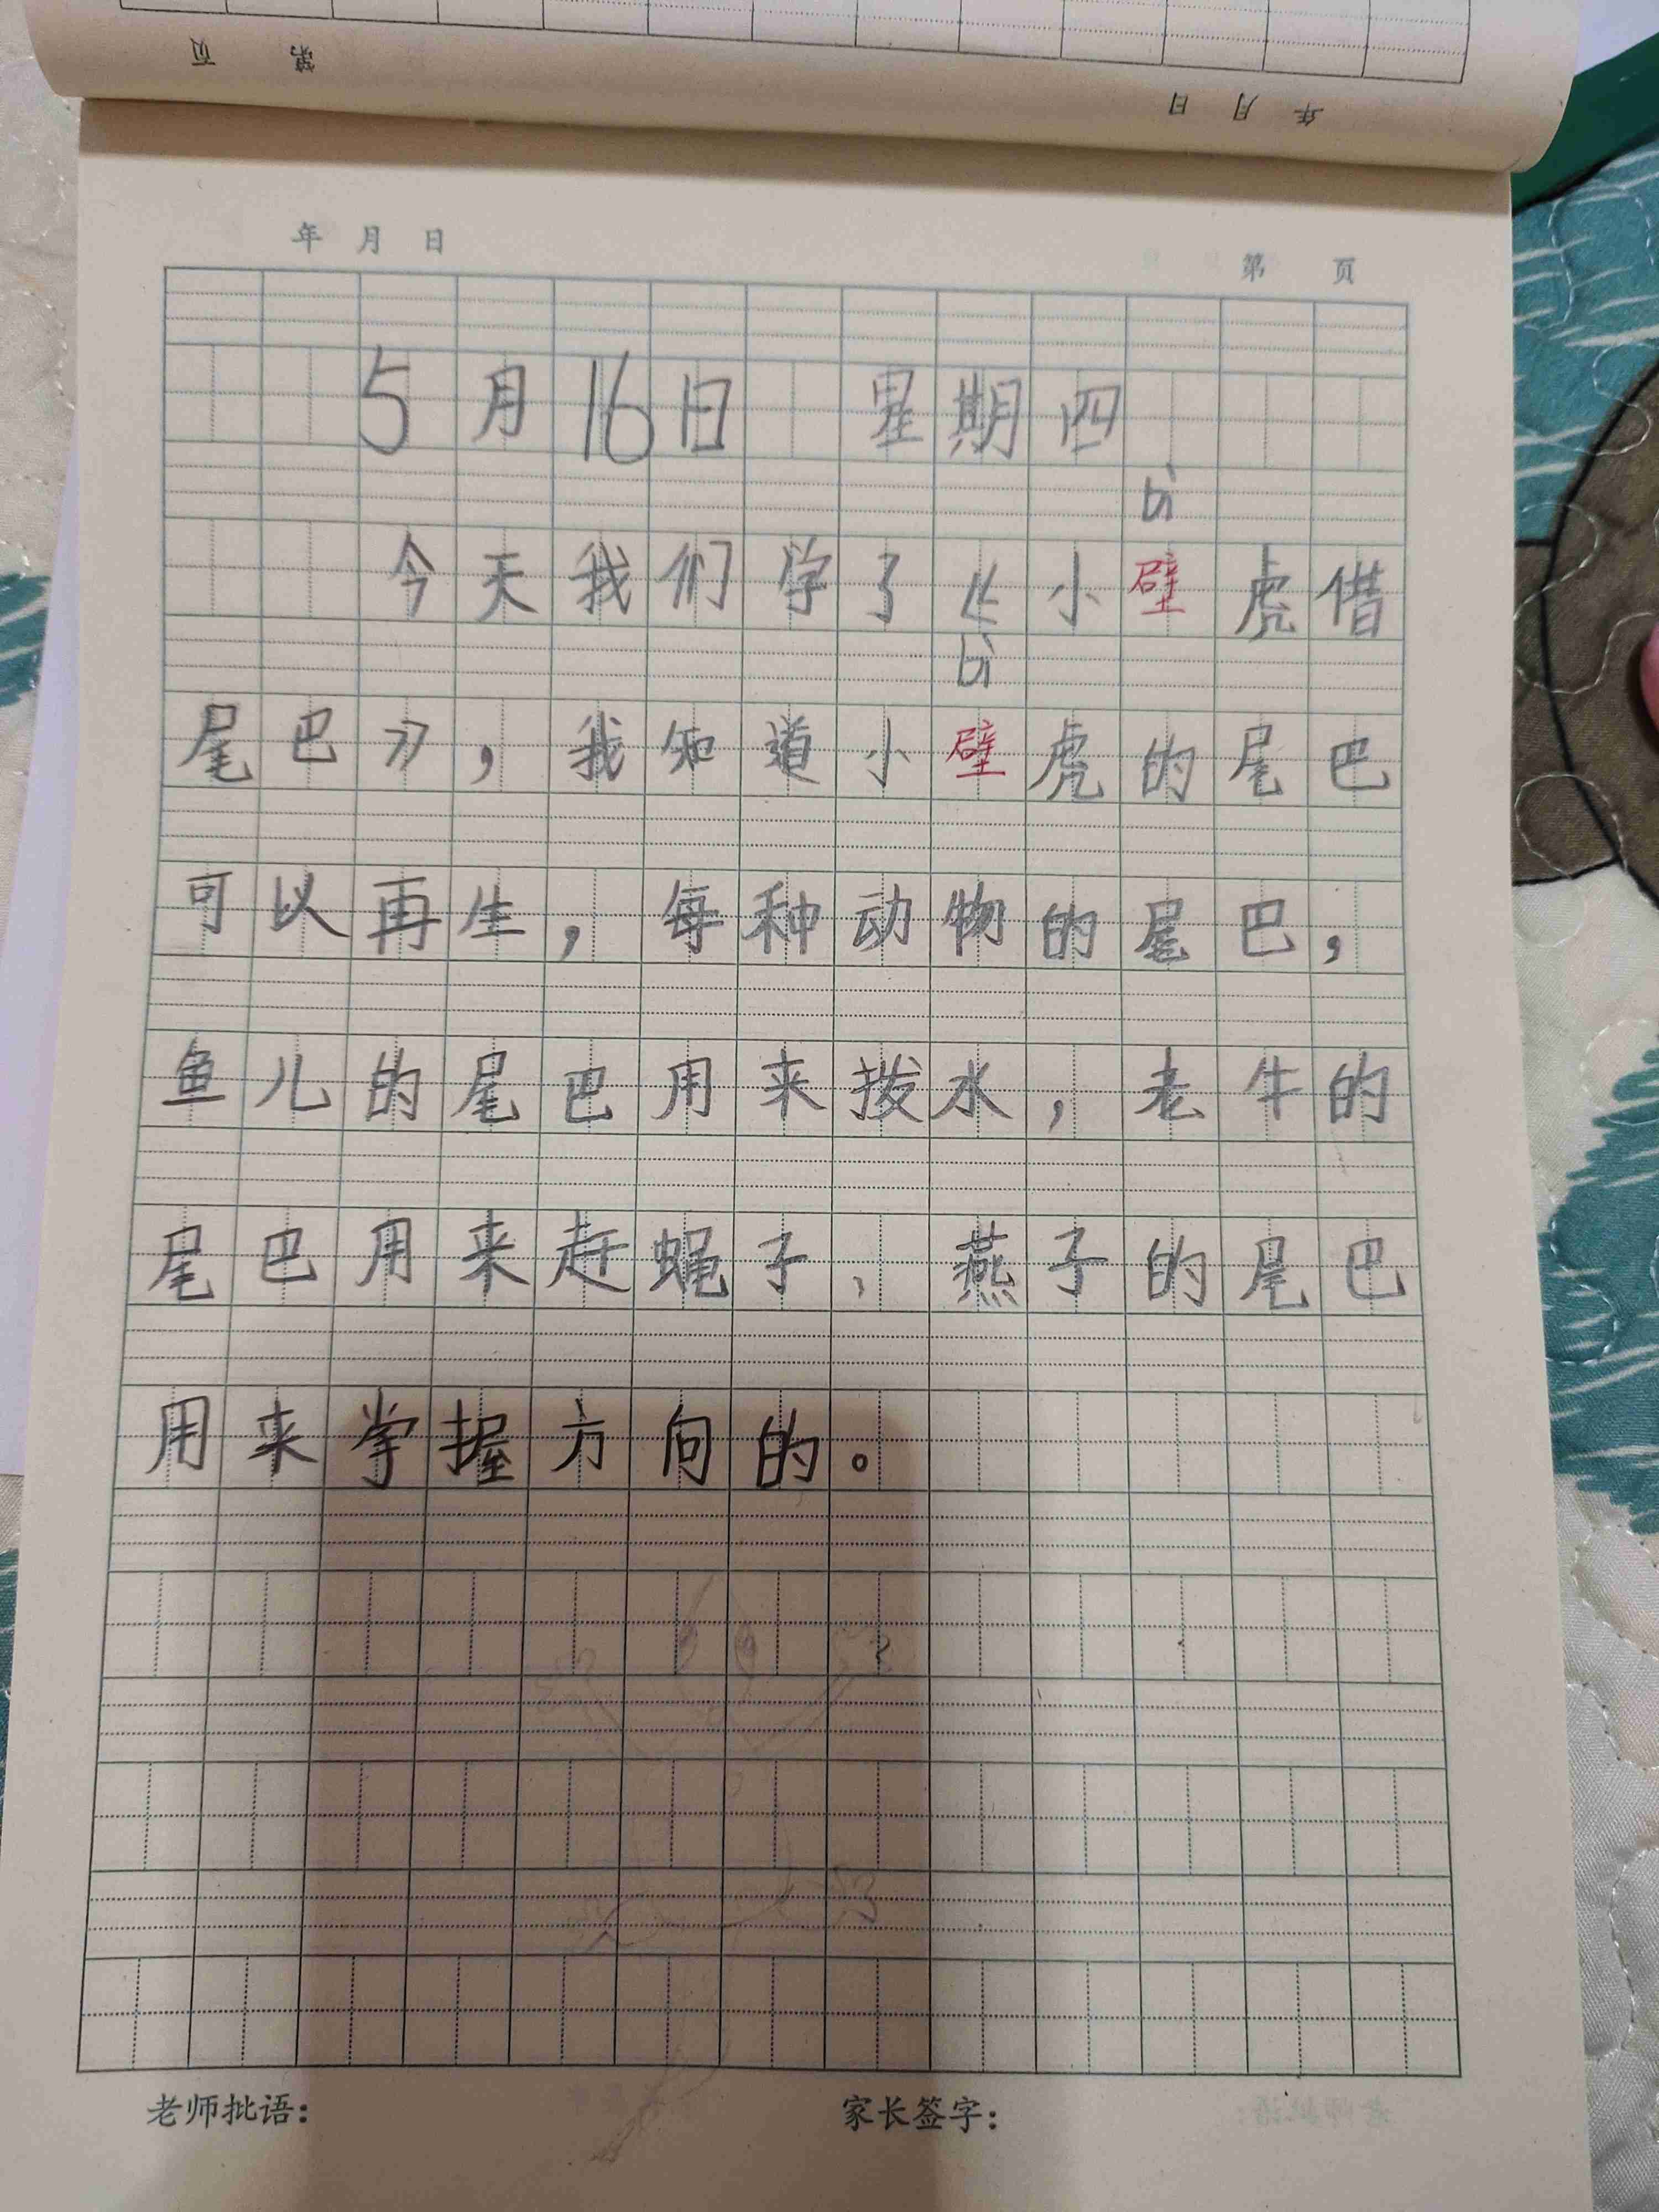 页 第
年 月 日
年 月 日
第 页
5月16日 星期四
bì
今天我们学了《小壁虎借
bì
尾巴》，我知道小壁虎的尾巴
可以再生，每种动物的尾巴，
鱼儿的尾巴用来拨水，老牛的
尾巴用来赶蝇子，燕子的尾巴
用来掌握方向的。
老师批语：
家长签字：